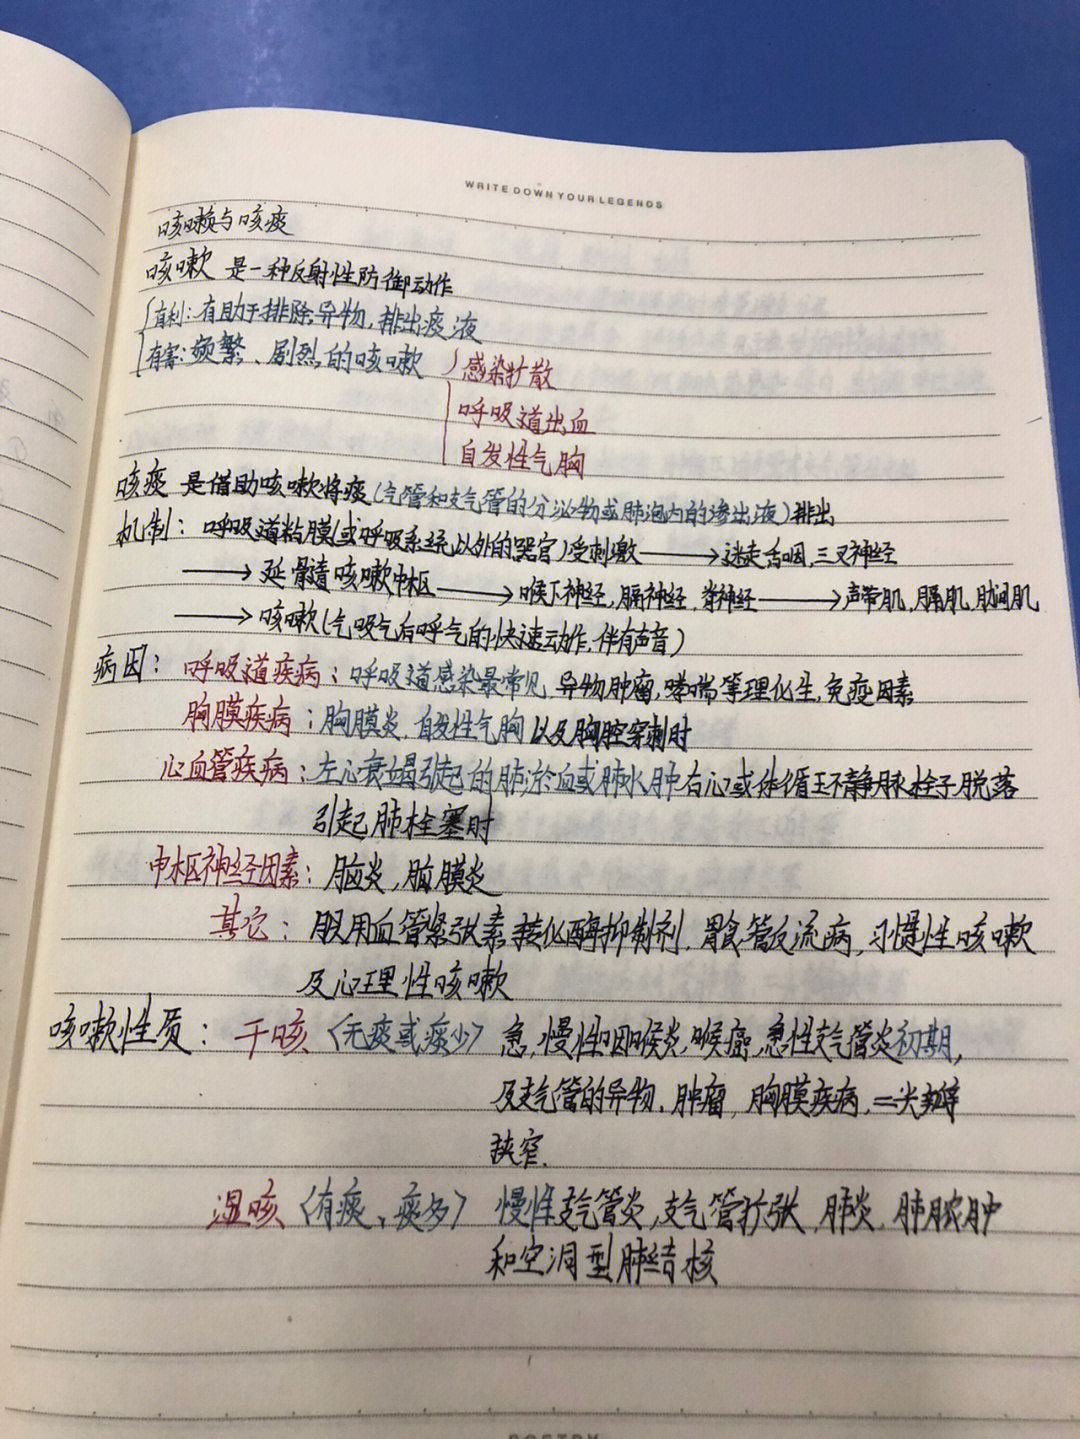 WRITE DOWN YOUR LEGENDS
咳嗽与咳痰
咳嗽 是一种反射性防御动作
有利：有助于排除异物，排出痰液
有害：频繁、剧烈的咳嗽 感染扩散
呼吸道出血
自发性气胸
咳痰 是借助咳嗽将痰（气管和支气管的分泌物或肺泡内的渗出液）排出
机制：呼吸道粘膜（或呼吸系统以外的器官）受刺激→迷走舌咽，三叉神经
→延髓咳嗽中枢→喉下神经，膈神经，脊神经→声带肌，膈肌，肋间肌
→咳嗽（气吸气后呼气的快速动作，伴有声音）
病因：呼吸道疾病：呼吸道感染最常见，异物肿瘤，哮喘等理化生，免疫因素
胸膜疾病：胸膜炎，自发性气胸以及胸腔穿刺时
心血管疾病：左心衰竭引起的肺淤血或肺水肿右心或体循环静脉栓子脱落
引起肺栓塞时
中枢神经因素：脑炎，脑膜炎
其它：服用血管紧张素转化酶抑制剂，胃食管反流病，习惯性咳嗽
及心理性咳嗽
咳嗽性质：干咳〈无痰或痰少〉急，慢性咽喉炎，喉癌，急性支气管炎初期，
及支气管的异物，肿瘤，胸膜疾病，二尖瓣
狭窄.
湿咳〈有痰、痰多〉慢性支气管炎，支气管扩张，肺炎，肺脓肿
和空洞型肺结核
POETRY